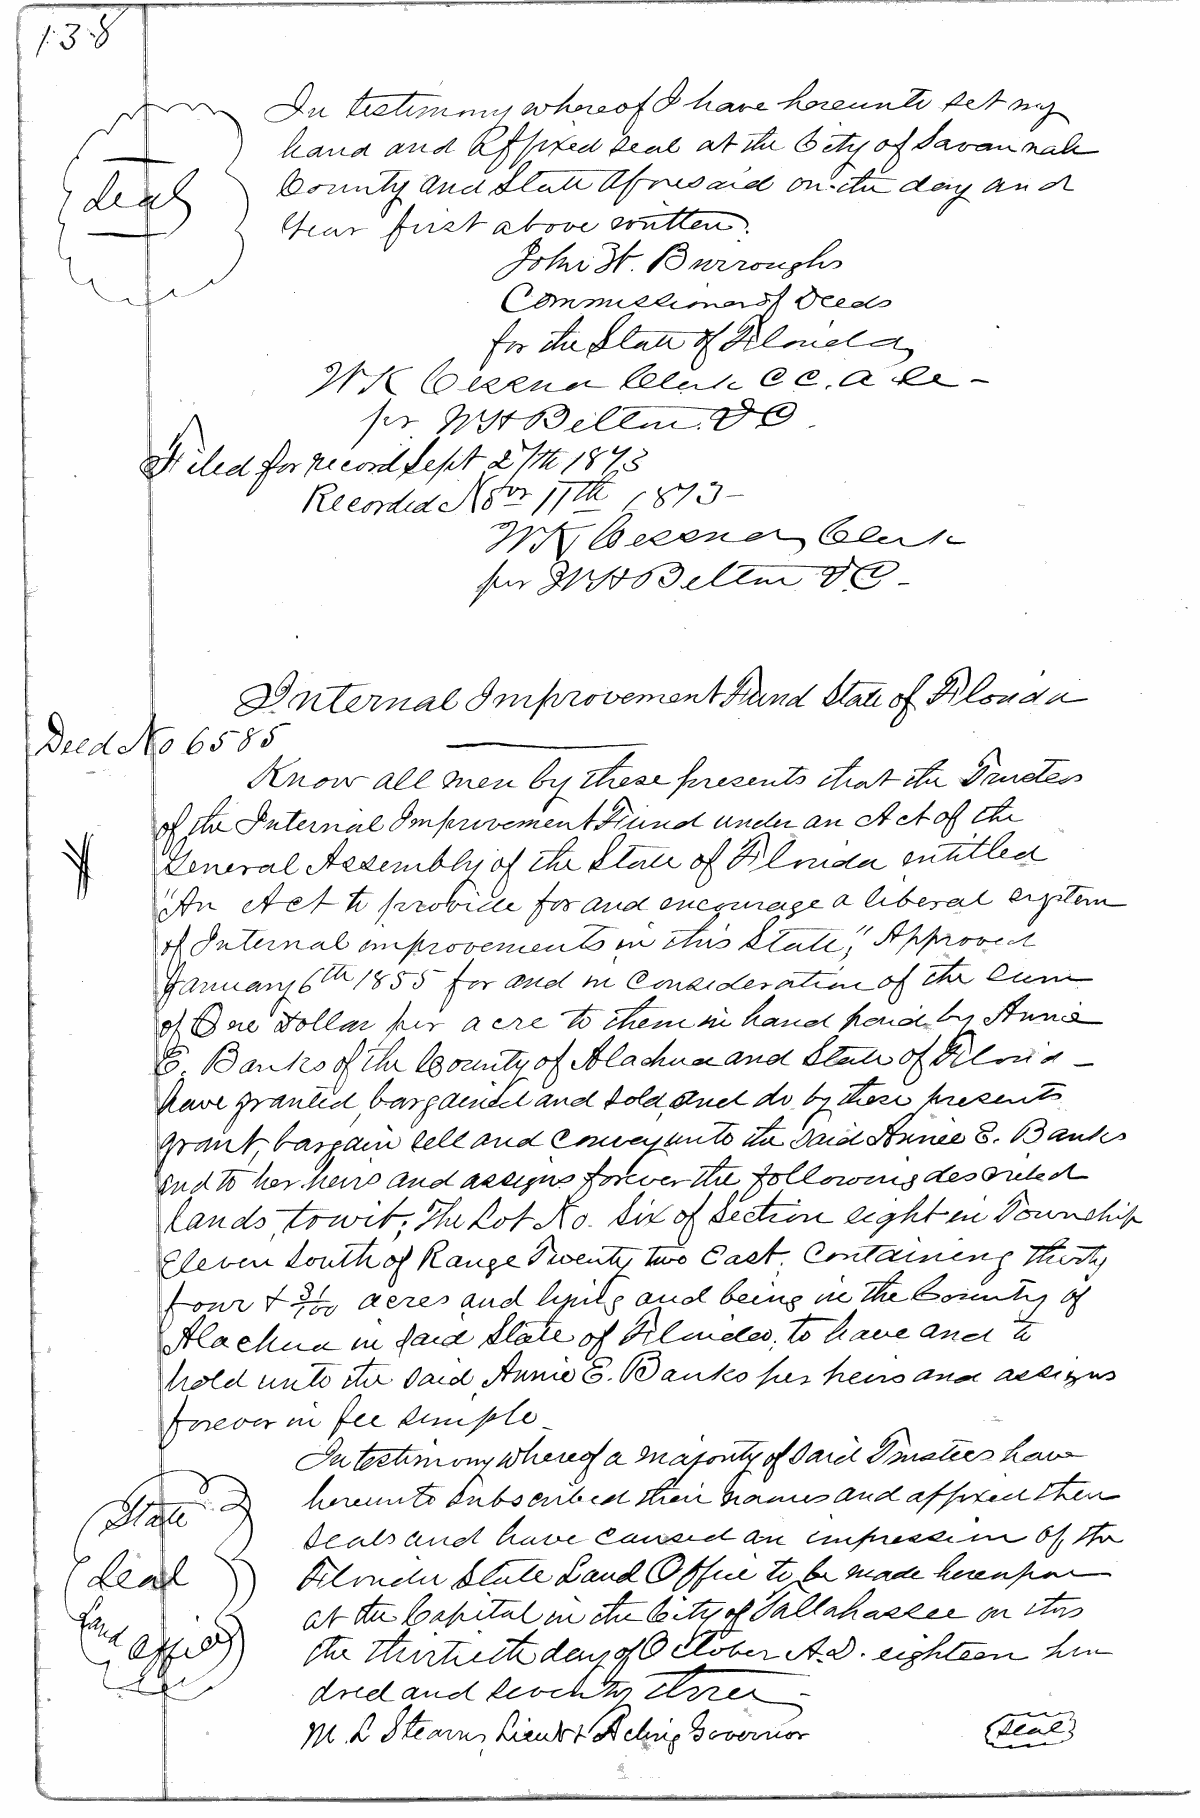 138
In testimony whereof I have hereunto set my
hand and affixed seal at the City of Savannah
Seal
County and State aforesaid on the day and
Year first above written.
John H. Burroughs
Commissioner of Deeds
for the State of Florida
W K Cessna Clerk C C. A Co -
per W H Belton D C.
Filed for record Sept 27th 1873
Recorded Novr 11th 1873 -
W K Cessna Clerk
per W H Belton D C -
Internal Improvement Fund State of Florida
Deed No 6585
Know all men by these presents that the Trustees
of the Internal Improvement Fund under an Act of the
General Assembly of the State of Florida entitled
"An Act to provide for and encourage a liberal system
of Internal improvements in this State," Approved
January 6th 1855 for and in Consideration of the sum
of One Dollar per acre to them in hand paid by Annie
E. Banks of the County of Alachua and State of Florid -
have granted, bargained and sold, and do by these presents
grant, bargain sell and convey unto the said Annie E. Banks
and to her heirs and assigns forever the following described
Lands, towit; The Lot No. Six of Section eight in Township
Eleven South of Range Twenty two East. Containing thirty
four & 31/100 acres and lying and being in the County of
Alachua in said State of Florida, to have and to
hold unto the said Annie E. Banks her heirs and assigns
forever in fee simple
In testimony whereof a majority of said Trustees have
hereunto subscribed their names and affixed their
State
seals and have caused an impression of the
Seal
Florida State Land Office to be made hereupon
Land
at the Capital in the City of Tallahassee on this
Office
the thirtieth day of October A.D. eighteen hun
dred and seventy three -
M. L Stearns, Lieut & Acting Governor
Seal